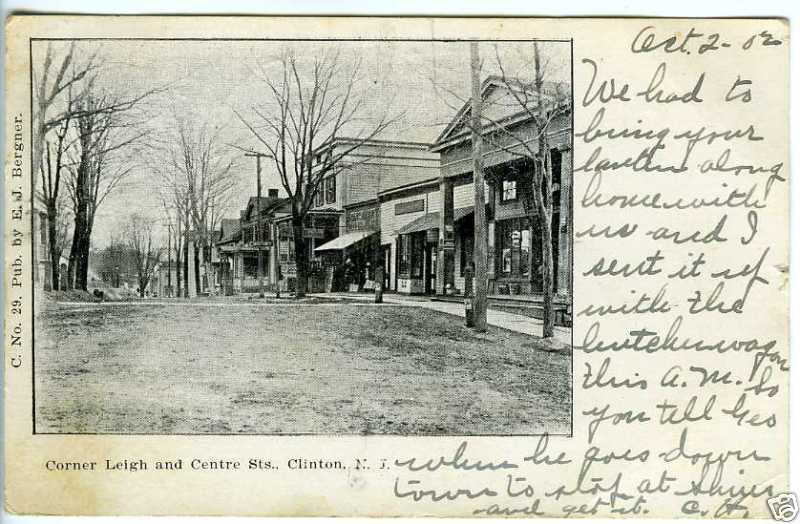 Oct. 2-02
We had to
bring your
lantern along
home with
us and I
sent it up
with the
butcher wagon
this A.M. So
you tell Geo
when he goes down
town to stop at
and get it. C. H.
C. No. 29. Pub. by E. J. Bergner.
Corner Leigh and Centre Sts., Clinton, N. J.